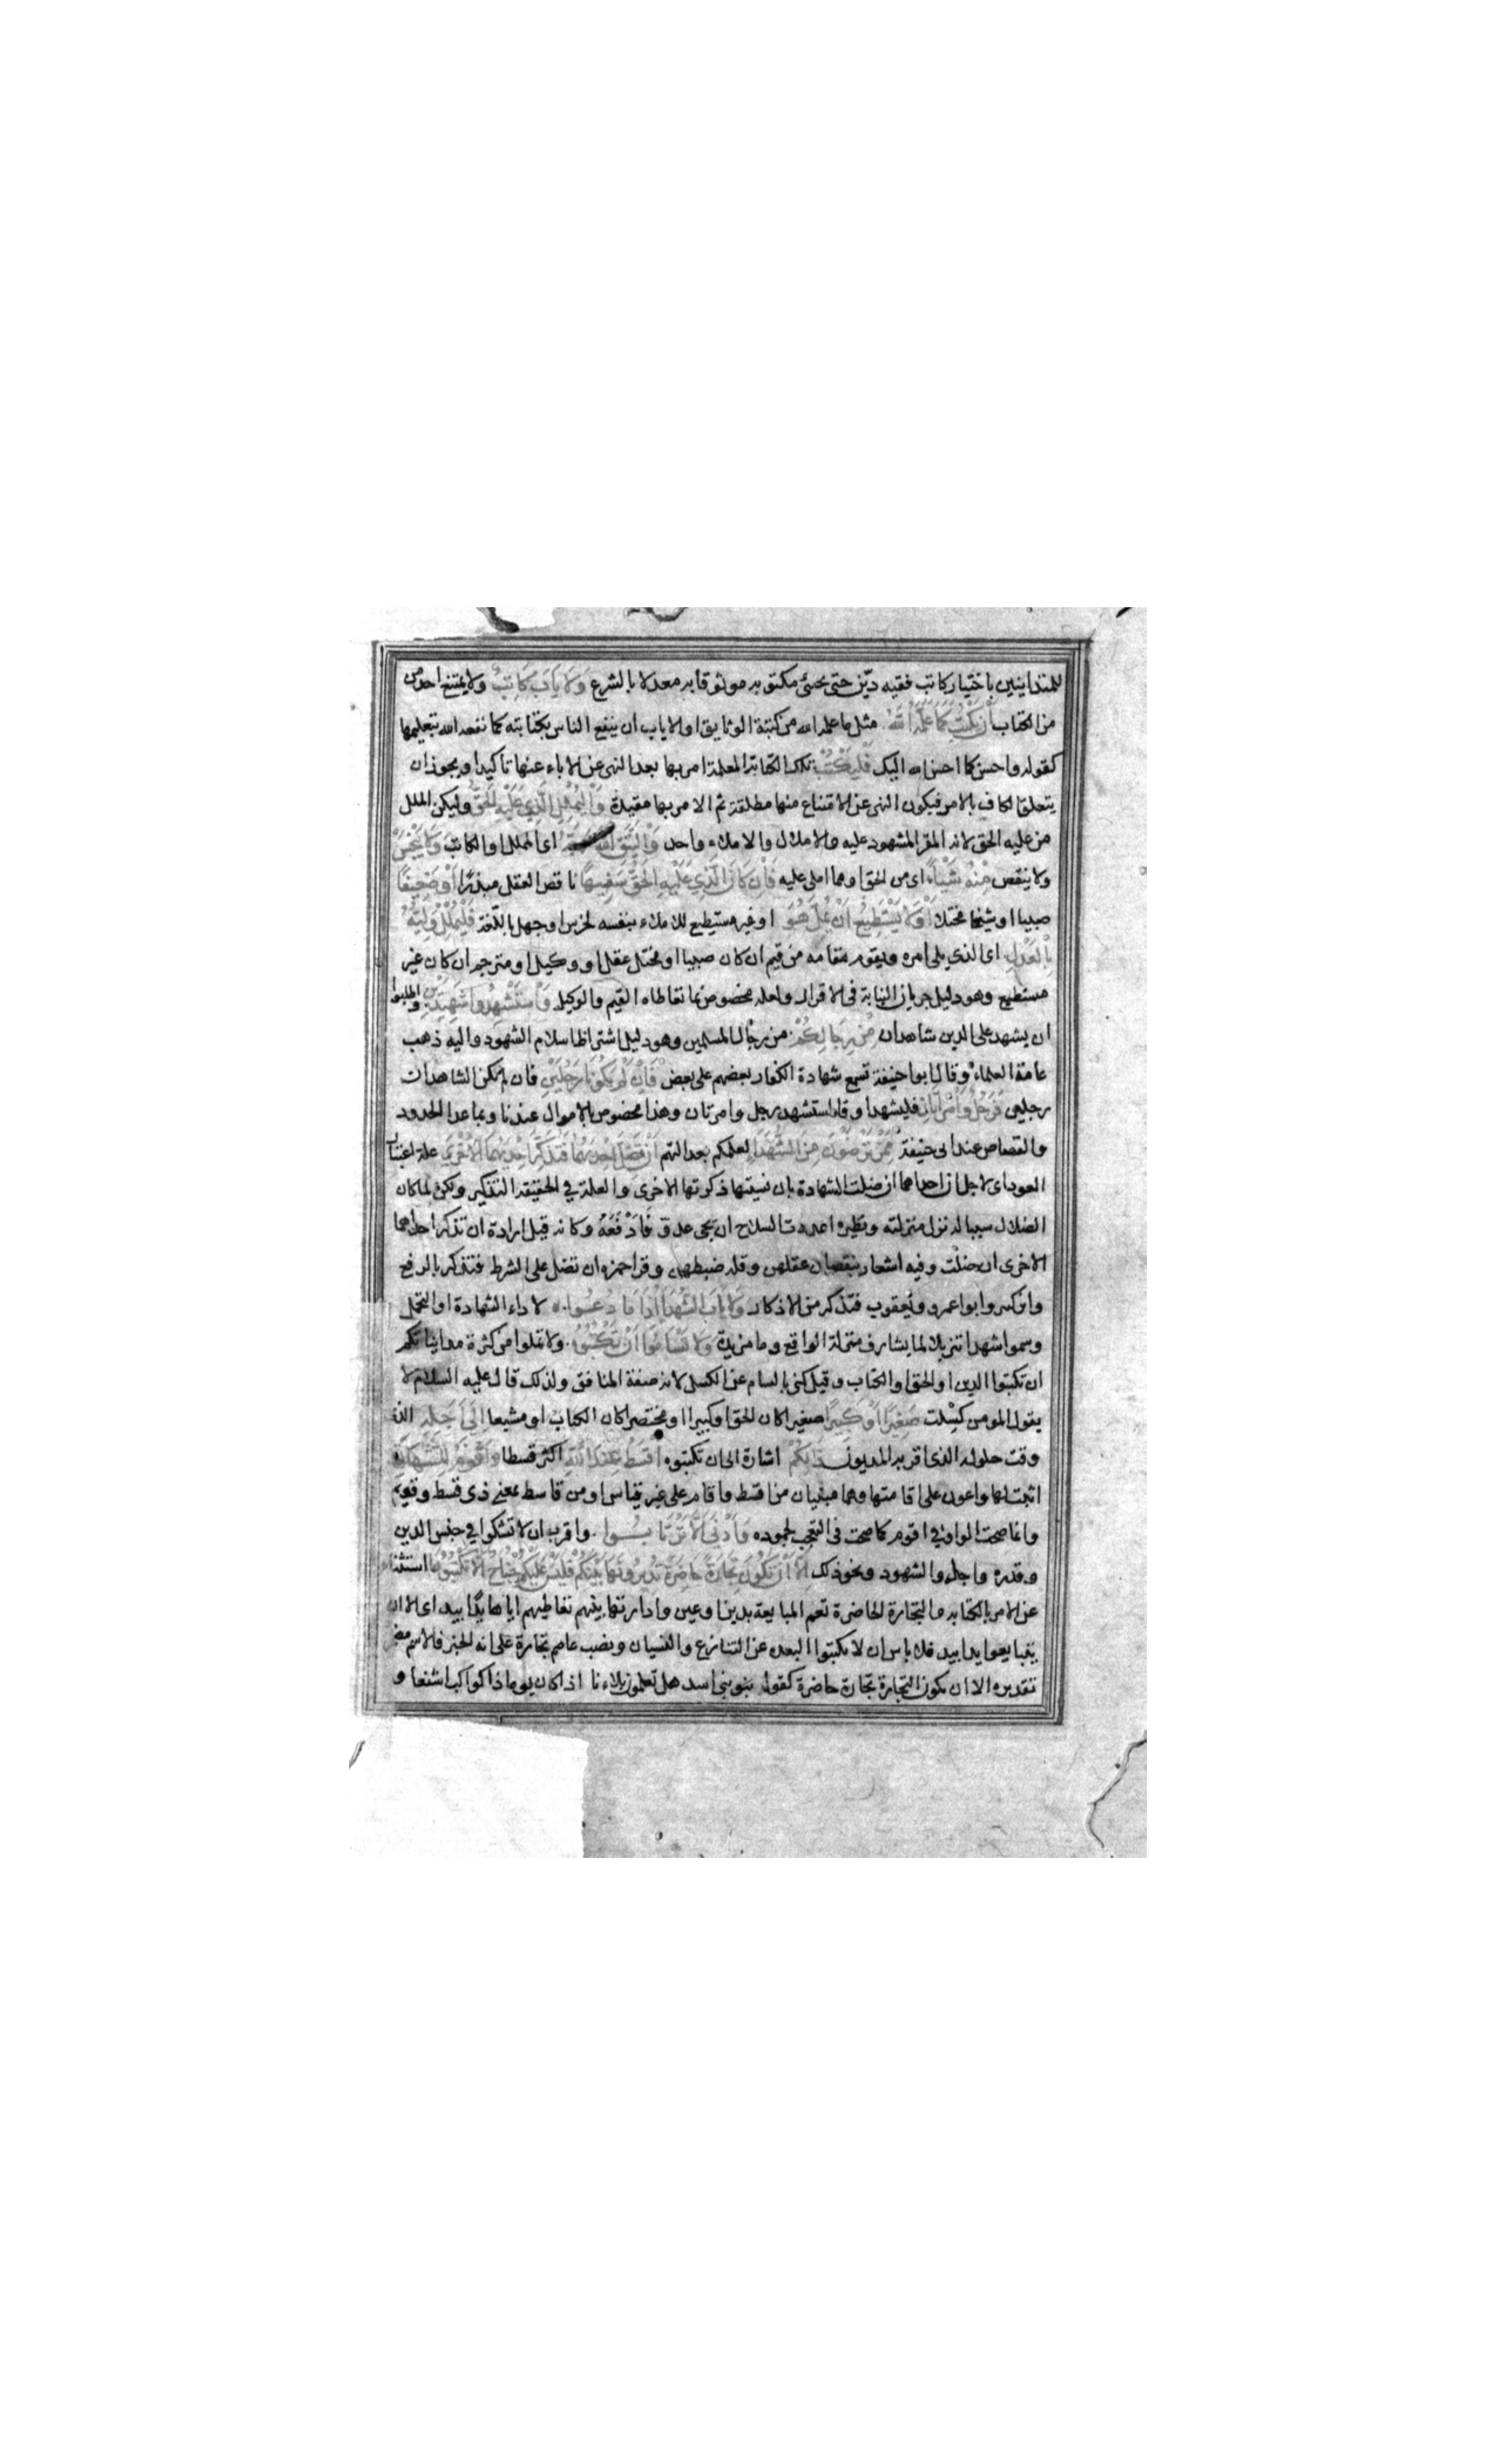 للمتداينين باختيار كاتب فقيه ديّن حتى يجئ مكتوبه موثوقا به معدلا بالشرع وَلَا يَأْبَ كَاتِبٌ ولا يمتنع احد من
من الكتاب أَنْ يَكْتُبَ كَمَا عَلَّمَهُ اللَّهُ مثل ما علمه الله من كتبة الوثايق اولا ياب ان ينفع الناس بكتابته كما نفعه الله بتعليمها
كقوله واحسن كما احسن الله اليك فَلْيَكْتُبْ تلك الكتابة المعلمة امر بها بعد النهى عن الاباء عنها تاكيدا ويجوز ان
يتعلق الكاف بالامر فيكون النهى عن الامتناع منها مطلقة ثم الامر بها مقيدة وَلْيُمْلِلِ الَّذِي عَلَيْهِ الْحَقُّ وليكن الملل
من عليه الحق لانه المقر المشهود عليه والاملال والاملاء واحد وَلْيَتَّقِ اللَّهَ رَبَّهُ اى المملل او الكاتب وَلَا يَبْخَسْ
ولا ينقص مِنْهُ شَيْئًا اى من الحق او مما املى عليه فَإِنْ كَانَ الَّذِي عَلَيْهِ الْحَقُّ سَفِيهًا ناقص العقل مبذرا أَوْ ضَعِيفًا
صبيا او شيخا مختلا أَوْ لَا يَسْتَطِيعُ أَنْ يُمِلَّ هُوَ او غير مستطيع للاملاء بنفسه لخرس او جهل باللغة فَلْيُمْلِلْ وَلِيُّهُ
بِالْعَدْلِ اى الذي يلى امره ويقوم مقامه من قيم ان كان صبيا او مختل عقل او وكيل او مترجم ان كان غير
مستطيع وهو دليل جريان النيابة فى الاقرار ولعله مخصوص بما تعاطاه القيم والوكيل وَاسْتَشْهِدُوا شَهِيدَيْنِ واطلبوا
ان يشهد على الدين شاهدان مِنْ رِجَالِكُمْ من رجال المسلمين وهو دليل اشتراط اسلام الشهود واليه ذهب
عامة العلماء وقال ابو حنيفة تسمع شهادة الكفار بعضهم على بعض فَإِنْ لَمْ يَكُونَا رَجُلَيْنِ فان لم يكن الشاهدان
رجلين فَرَجُلٌ وَامْرَأَتَانِ فليشهد او فليستشهد رجل وامرتان وهذا مخصوص بالاموال عندنا وبما عدا الحدود
والقصاص عند ابى حنيفة مِمَّنْ تَرْضَوْنَ مِنَ الشُّهَدَاءِ لعلمكم بعدالتهم أَنْ تَضِلَّ إِحْدَاهُمَا فَتُذَكِّرَ إِحْدَاهُمَا الْأُخْرَى علة اعتبار
العدد اى لاجل ان احداهما ان ضلت الشهادة بان نسيتها ذكرتها الاخرى والعلة في الحقيقة التذكير ولكن لما كان
الضلال سببا له نزل منزلته ونظيره اعددت السلاح ان يجى عدو فَأَدْفَعَهُ وكانه قيل ارادة ان تذكر احداهما
الاخرى ان ضلت وفيه اشعار بنقصان عقلهن وقلة ضبطهن وقرا حمزه ان تضل على الشرط فتذكر بالرفع
وابن كثير وابوا عمرو ويعقوب فتذكر من الاذكار وَلَا يَأْبَ الشُّهَدَاءُ إِذَا مَا دُعُوا لاداء الشهادة او التحمل
وسموا شهدا تنزيلا لما يشارف منزلة الواقع وما مزيدة وَلَا تَسْأَمُوا أَنْ تَكْتُبُوهُ ولا تملوا من كثرة مدايناتكم
ان تكتبوا الدين او الحق او الكتاب وقيل كنى بالسام عن الكسل لانه صفة المنافق ولذلك قال عليه السلام لا
يقول المومن كسلت صَغِيرًا أَوْ كَبِيرًا صغيرا كان الحق او كبيرا او مختصرا كان الكتاب او مشبعا إِلَى أَجَلِهِ الى
وقت حلوله الذى اقر به المديون ذَلِكُمْ اشارة الى ان تكتبوه أَقْسَطُ عِنْدَ اللَّهِ اكثر قسطا وَأَقْوَمُ لِلشَّهَادَةِ
اثبت لها واعون على اقامتها وهما مبنيان من اقسط واقام على غير قياس او من قاسط بمعنى ذى قسط وقويم
وانما صحت الواو في اقوم كما صحت فى التعجب لجموده وَأَدْنَى أَلَّا تَرْتَابُوا واقرب ان لا تشكوا في جنس الدين
وقدره واجله والشهود ونحو ذلك إِلَّا أَنْ تَكُونَ تِجَارَةً حَاضِرَةً تُدِيرُونَهَا بَيْنَكُمْ فَلَيْسَ عَلَيْكُمْ جُنَاحٌ أَلَّا تَكْتُبُوهَا استثناء
عن الامر بالكتابه والتجارة الحاضرة تعم المبايعة بدين او عين وادارتها بينهم تعاطيهم اياها يدًا بيد اى الا ان
يتبايعوا يدا بيد فلا باس ان لا تكتبوا البعده عن التنازع والنسيان ونصب عاصم تجارة على انه الخبر فالاسم مضمر
تقديره الا ان تكون التجارة تجارة حاضرة كقوله بنو بنى اسد هل تعلمون بلاءنا اذا كان يوما ذا كواكب اشنعا و